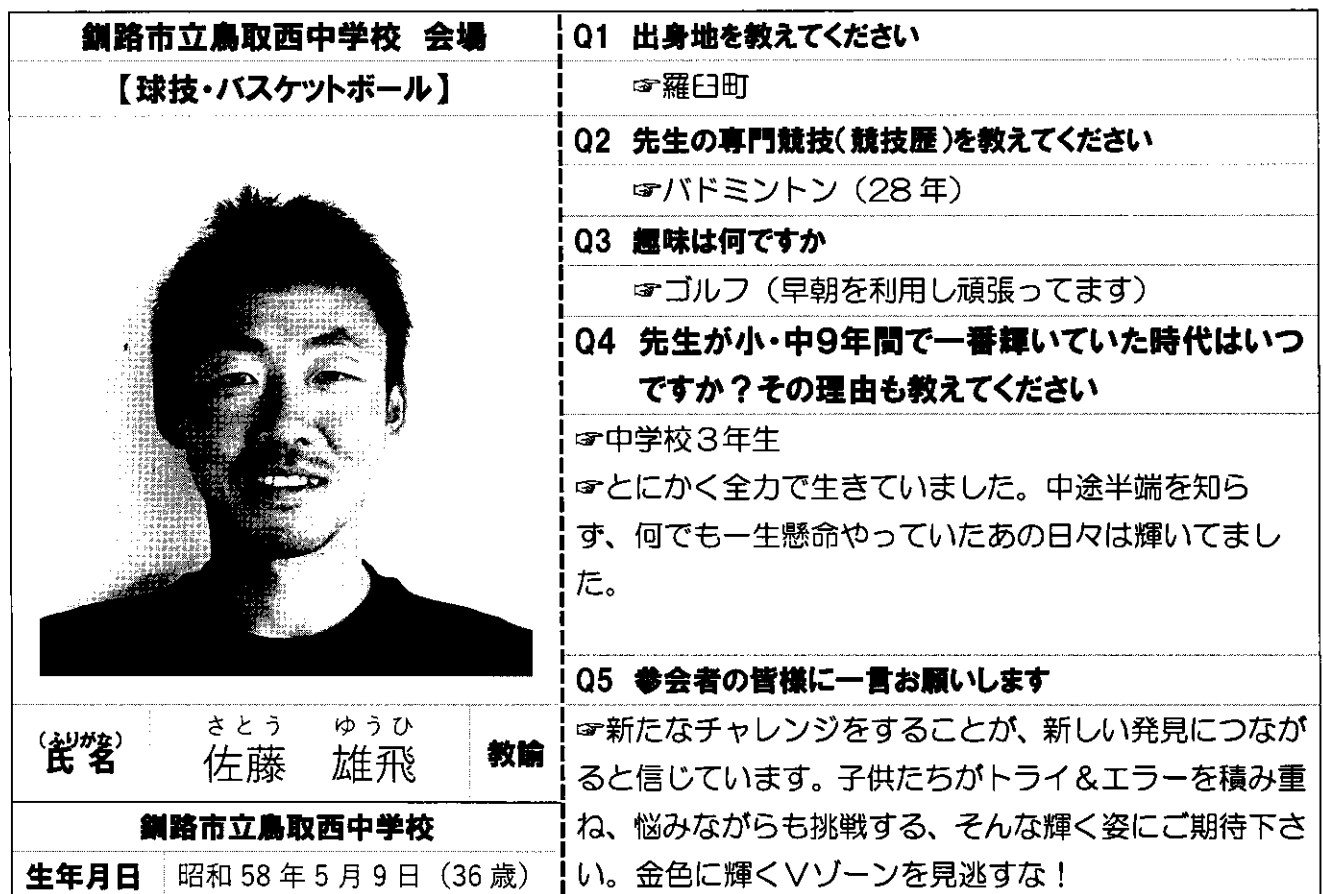 釧路市立鳥取西中学校 会場
【球技・バスケットボール】
さとう ゆうひ
(ふりがな)
氏名 佐藤 雄飛 教諭
釧路市立鳥取西中学校
生年月日 昭和58年5月9日(36歳)
Q1 出身地を教えてください
☞羅臼町
Q2 先生の専門競技(競技歴)を教えてください
☞バドミントン(28年)
Q3 趣味は何ですか
☞ゴルフ(早朝を利用し頑張ってます)
Q4 先生が小・中9年間で一番輝いていた時代はいつ
ですか?その理由も教えてください
☞中学校3年生
☞とにかく全力で生きていました。中途半端を知ら
ず、何でも一生懸命やっていたあの日々は輝いてまし
た。
Q5 参会者の皆様に一言お願いします
☞新たなチャレンジをすることが、新しい発見につなが
ると信じています。子供たちがトライ&エラーを積み重
ね、悩みながらも挑戦する、そんな輝く姿にご期待下さ
い。金色に輝くVゾーンを見逃すな!